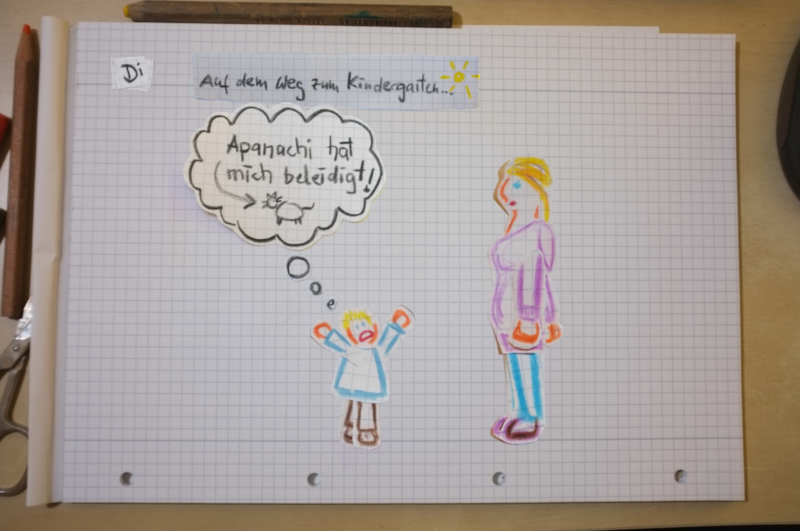 Di
Auf dem Weg zum Kindergarten...
Apanachi hat
mich beleidigt!